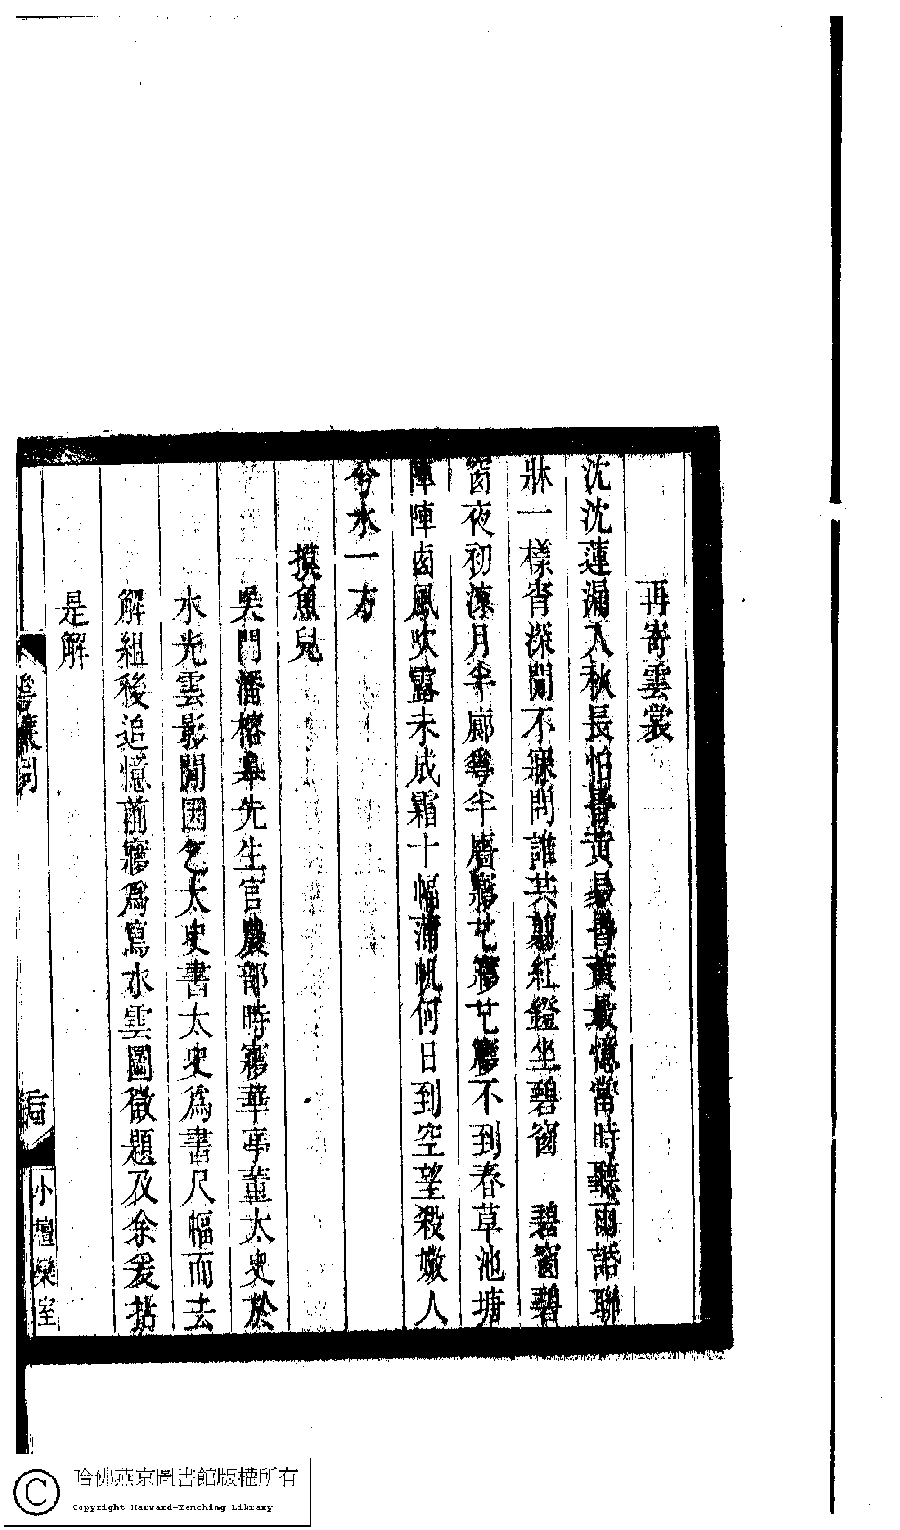 再寄雲裳
沈沈蓮漏入秋長怕昏黃最昏黃最憶當時聽雨話聯
牀一樣宵深閒不寐問誰共翦紅鐙坐碧窗 碧窗碧
窗夜初涼月半廊尋半牆寱也寱也寱不到春草池塘
陣陣西風吹露未成霜十幅蒲帆何日到空望殺嬾人
兮水一方
摸魚兒
吳門潘榕皋先生官農部時寱華亭董太史於
水光雲影閒囡乞太史書太史為書尺幅而去
解組後追憶前寱為寫水雲圖徵題及余爰拈
是解
小檀欒室
哈佛燕京圖書館版權所有
Copyright Harvard-Yenching Library